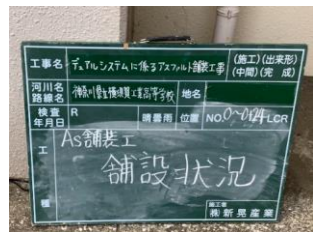 工事名 デュアルシステムに係るアスファルト舗装工事 (施工)(出来形)(中間)(完 成)
河川名 路線名 神奈川県立横須賀工業高等学校 地名
検査年月日 R 晴曇雨 位置 NO.0~0+24 LCR
工種 As舗装工
舗設状況
施工者
㈱新晃産業